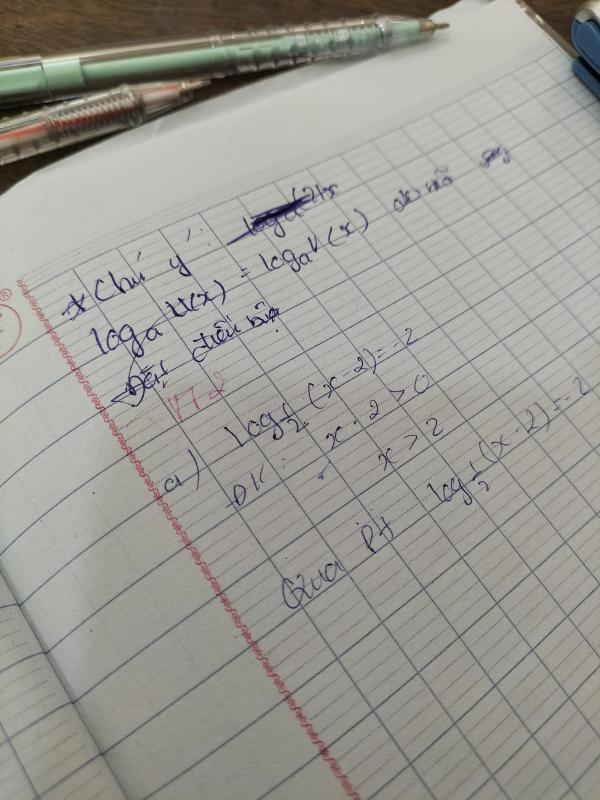 * Chú ý:
logₐ u(x) = logₐ v(x)
Đặt điều kiện
VD2
a) log 1/2 (x-2) = -2
ĐK: x - 2 > 0
x > 2
Qua Pt log 1/2 (x-2) = -2